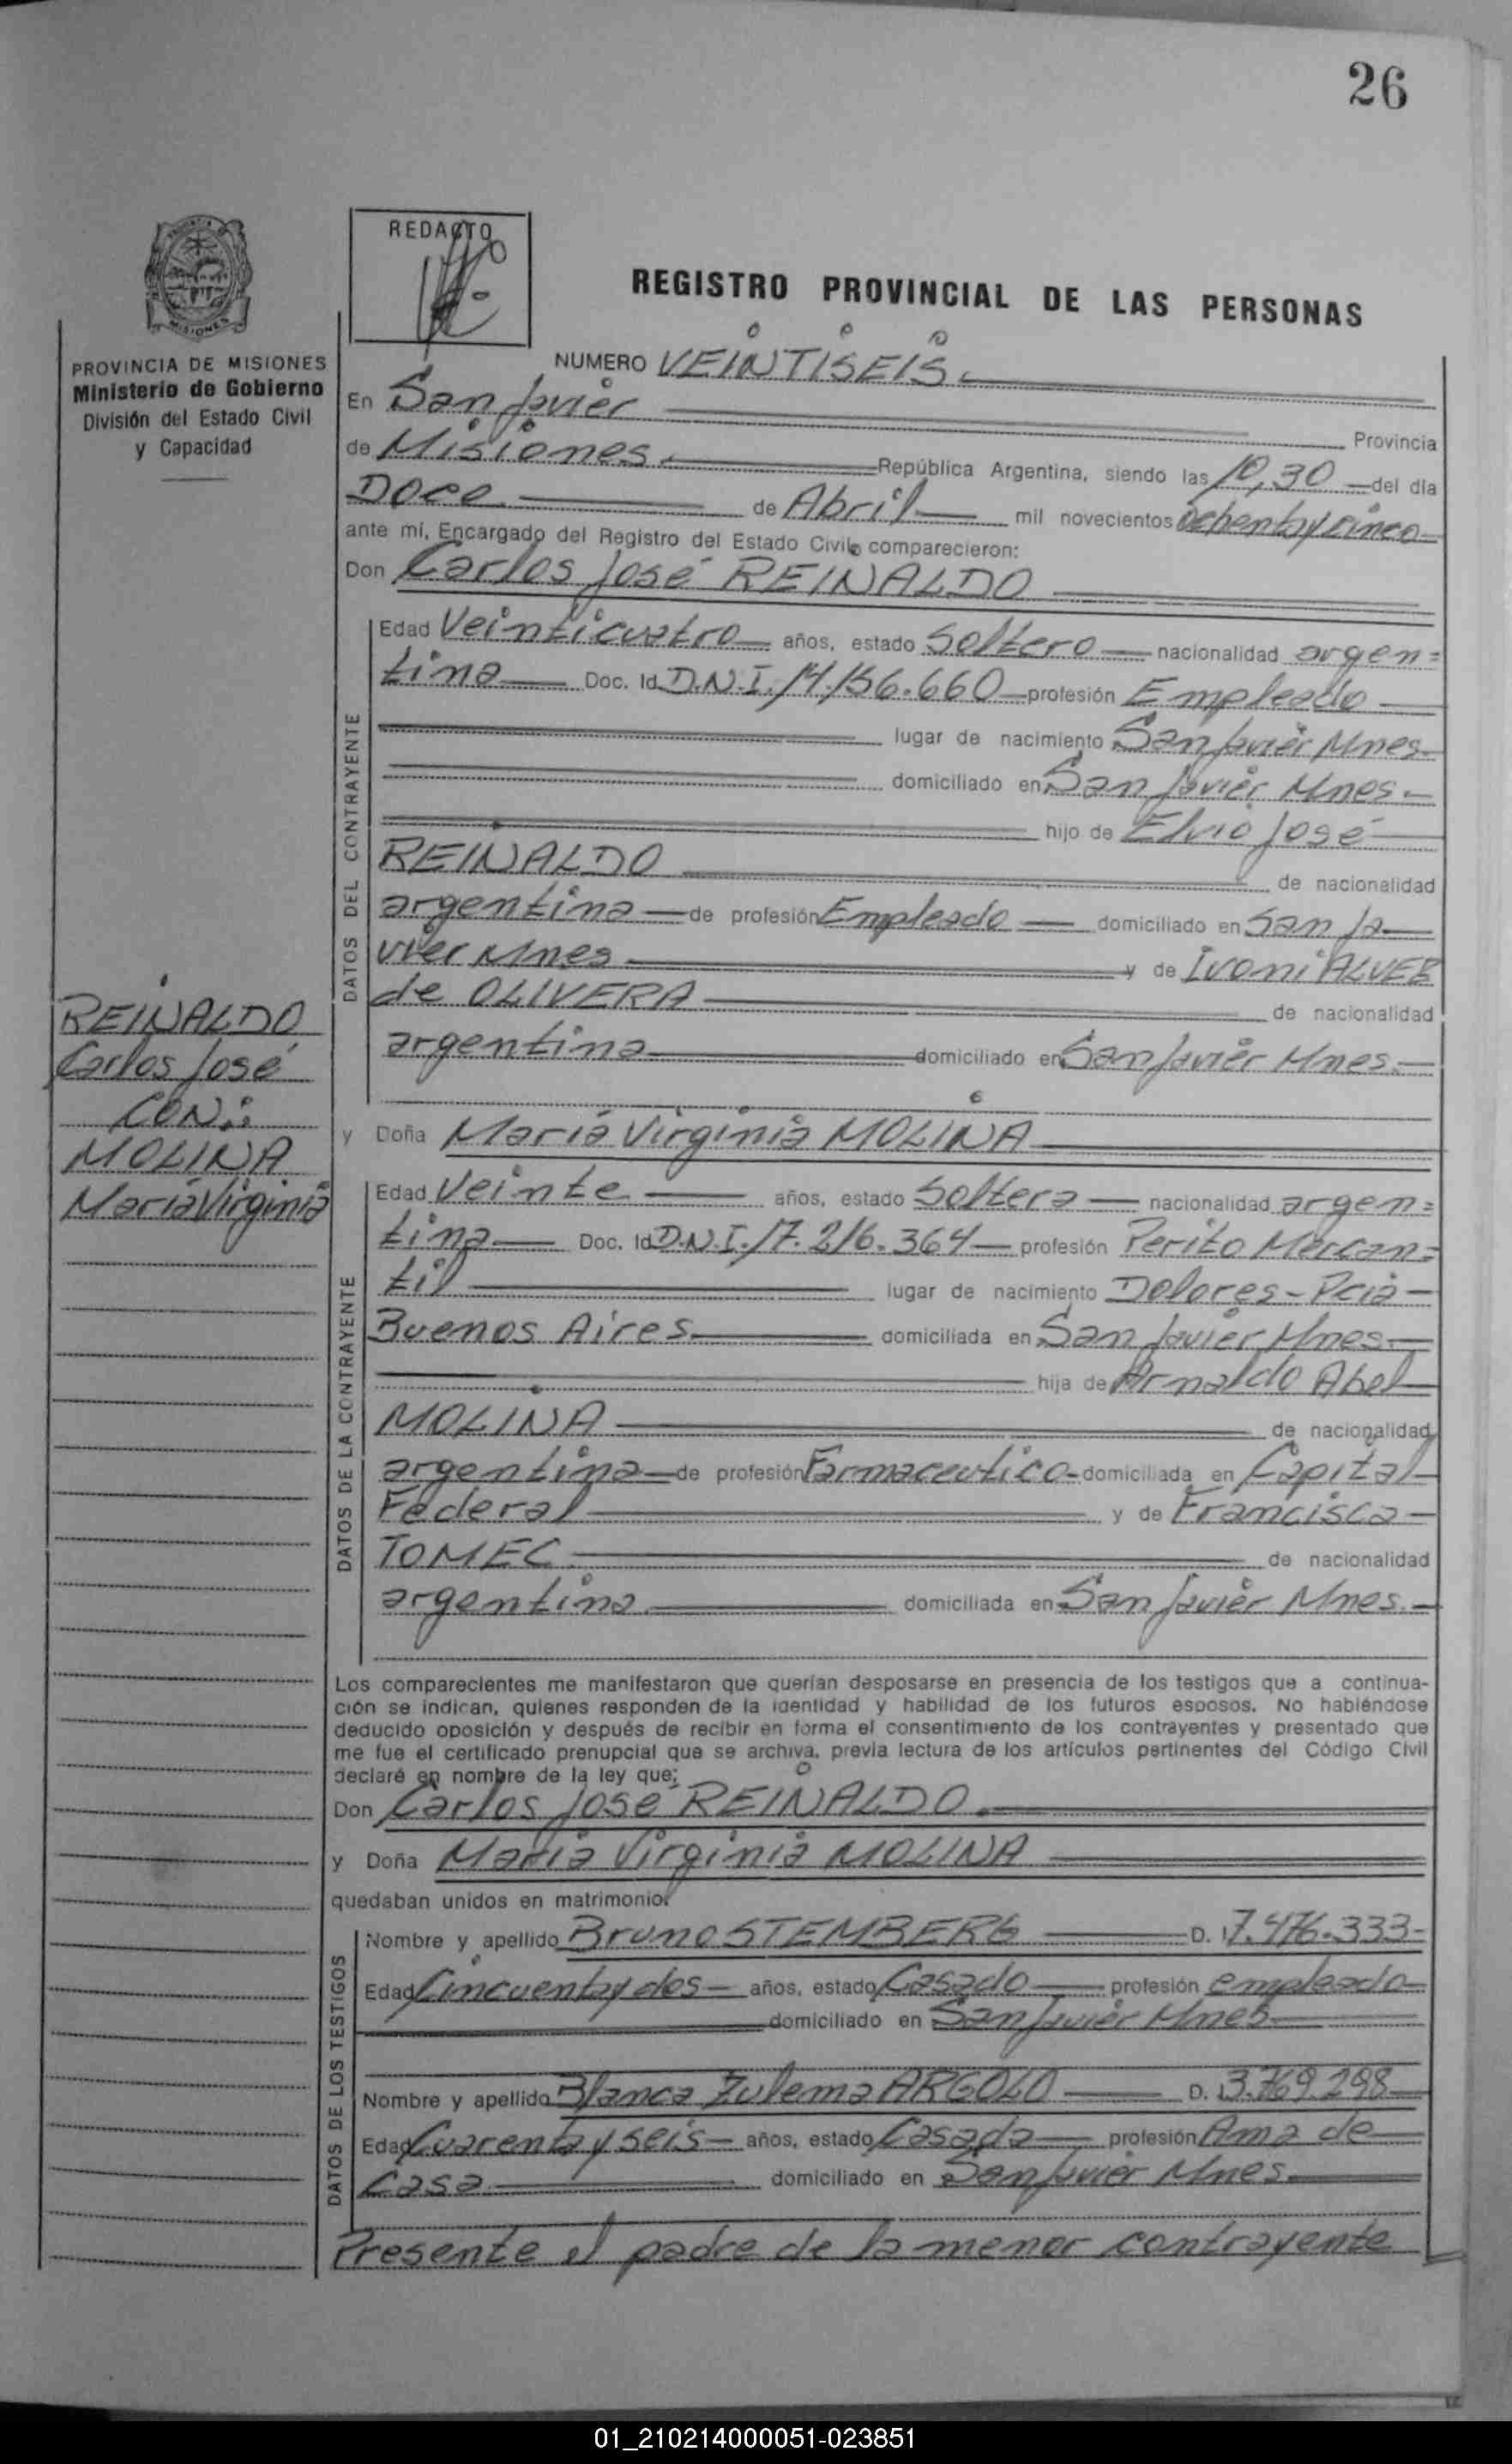 26
REDACTO
REGISTRO PROVINCIAL DE LAS PERSONAS
MISIONES
PROVINCIA DE MISIONES
Ministerio de Gobierno
División del Estado Civil
y Capacidad
NUMERO VEINTISEIS.
En San Javier Provincia
de Misiones. República Argentina, siendo las 10,30 del día
Doce de Abril mil novecientos ochenta y cinco
ante mí, Encargado del Registro del Estado Civil, comparecieron:
Don Carlos José REINALDO
DATOS DEL CONTRAYENTE
Edad Veinticuatro años, estado Soltero nacionalidad argen=
tina Doc. Id. D.N.I. 14.156.660 profesión Empleado
lugar de nacimiento San Javier Mnes.
domiciliado en San Javier Mnes.
hijo de Elvio José
REINALDO de nacionalidad
argentina de profesión Empleado domiciliado en San Ja
vier Mnes y de Ivoni ALVEZ
de OLIVERA de nacionalidad
argentina domiciliado en San Javier Mnes.
REINALDO
Carlos José
CON:
MOLINA
María Virginia
y Doña María Virginia MOLINA
DATOS DE LA CONTRAYENTE
Edad Veinte años, estado Soltera nacionalidad argen=
tina Doc. Id. D.N.I. 17.216.364 profesión Perito Mercan=
til lugar de nacimiento Dolores - Pcia
Buenos Aires domiciliada en San Javier Mnes.
hija de Arnaldo Abel
MOLINA de nacionalidad
argentina de profesión Farmaceutico domiciliada en Capital
Federal y de Francisca
TOMEC de nacionalidad
argentina domiciliada en San Javier Mnes.
Los comparecientes me manifestaron que querían desposarse en presencia de los testigos que a continua-
ción se indican, quienes responden de la identidad y habilidad de los futuros esposos. No habiéndose
deducido oposición y después de recibir en forma el consentimiento de los contrayentes y presentado que
me fue el certificado prenupcial que se archiva, previa lectura de los artículos pertinentes del Código Civil
declaré en nombre de la ley que;
Don Carlos José REINALDO.
y Doña María Virginia MOLINA
quedaban unidos en matrimonio.
DATOS DE LOS TESTIGOS
Nombre y apellido Bruno STEMBERG D. I 7.476.333
Edad Cincuenta y dos años, estado Casado profesión empleado
domiciliado en San Javier Mnes
Nombre y apellido Blanca Zulema ARGOLO D. I 3.769.298
Edad Cuarenta y seis años, estado Casada profesión Ama de
Casa domiciliado en San Javier Mnes.
Presente el padre de la menor contrayente
01_210214000051-023851